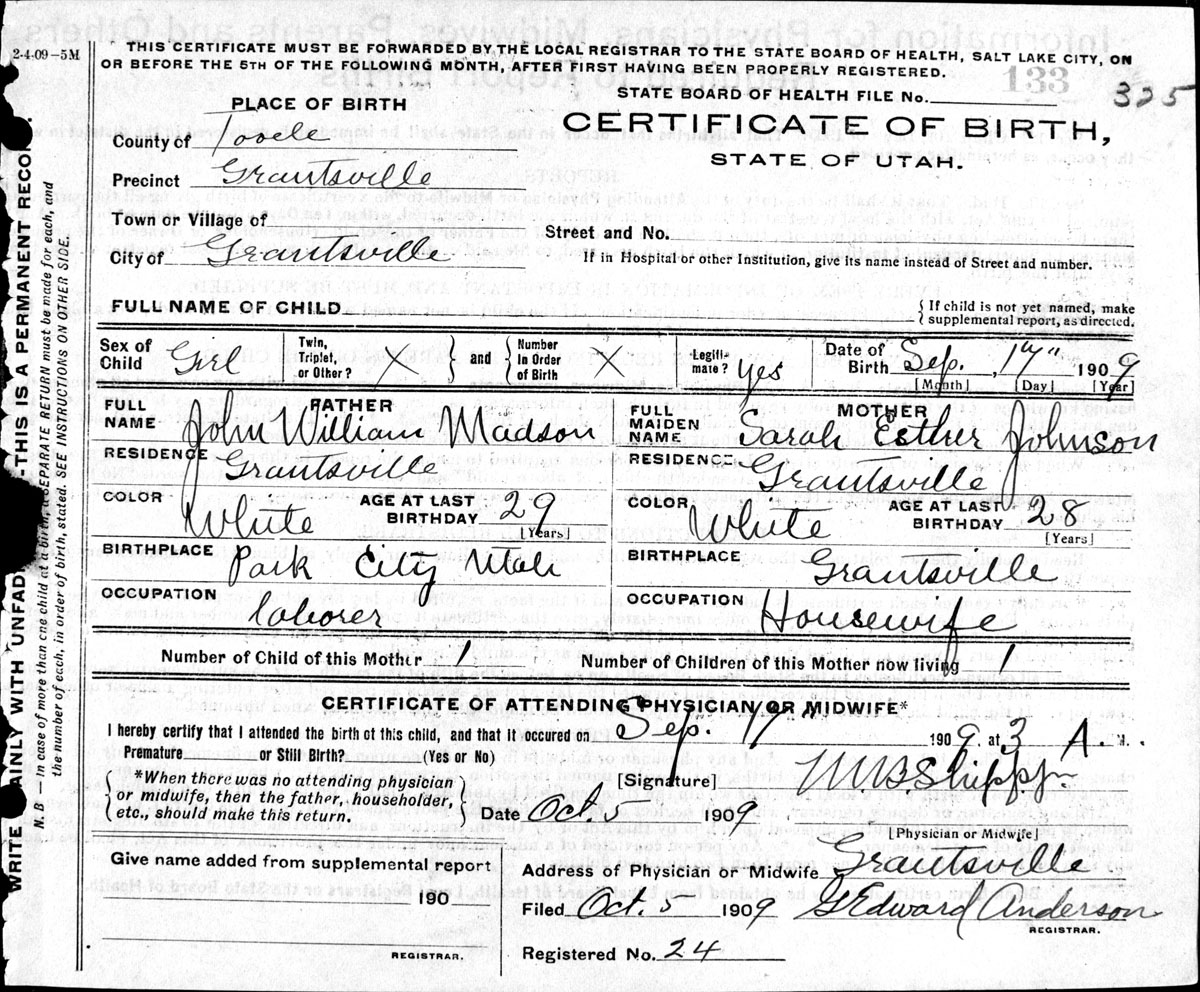 2-4-09-5M
THIS CERTIFICATE MUST BE FORWARDED BY THE LOCAL REGISTRAR TO THE STATE BOARD OF HEALTH, SALT LAKE CITY, ON
OR BEFORE THE 5TH OF THE FOLLOWING MONTH, AFTER FIRST HAVING BEEN PROPERLY REGISTERED.
133
STATE BOARD OF HEALTH FILE No. 325
PLACE OF BIRTH
CERTIFICATE OF BIRTH,
STATE OF UTAH.
County of Tooele
Precinct Grantsville
Town or Village of
City of Grantsville
Street and No.
If in Hospital or other Institution, give its name instead of Street and number.
FULL NAME OF CHILD
{ If child is not yet named, make
supplemental report, as directed.
Sex of Child Girl
Twin, Triplet, or Other? X } and { Number In Order of Birth X
Legiti-mate? yes
Date of Birth Sep. 17" 1909
[Month] [Day] [Year]
FATHER
FULL NAME John William Madson
RESIDENCE Grantsville
COLOR White AGE AT LAST BIRTHDAY 29
[Years]
BIRTHPLACE Park City Utah
OCCUPATION laborer
MOTHER
FULL MAIDEN NAME Sarah Esther Johnson
RESIDENCE Grantsville
COLOR White AGE AT LAST BIRTHDAY 28
[Years]
BIRTHPLACE Grantsville
OCCUPATION Housewife
Number of Child of this Mother 1 Number of Children of this Mother now living 1
CERTIFICATE OF ATTENDING PHYSICIAN OR MIDWIFE*
I hereby certify that I attended the birth of this child, and that it occured on Sep. 17" 1909 at 3 A. M.
Premature? or Still Birth? (Yes or No)
{ *When there was no attending physician
or midwife, then the father, householder,
etc., should make this return. }
[Signature]
Date Oct 5 1909
[Physician or Midwife]
Give name added from supplemental report
190
REGISTRAR.
Address of Physician or Midwife Grantsville
Filed Oct. 5 1909 G Edward Anderson
REGISTRAR.
Registered No. 24
THIS IS A PERMANENT RECO
N. B.—In case of more than one child at a birth, a SEPARATE RETURN must be made for each, and
the number of each, in order of birth, stated. SEE INSTRUCTIONS ON OTHER SIDE.